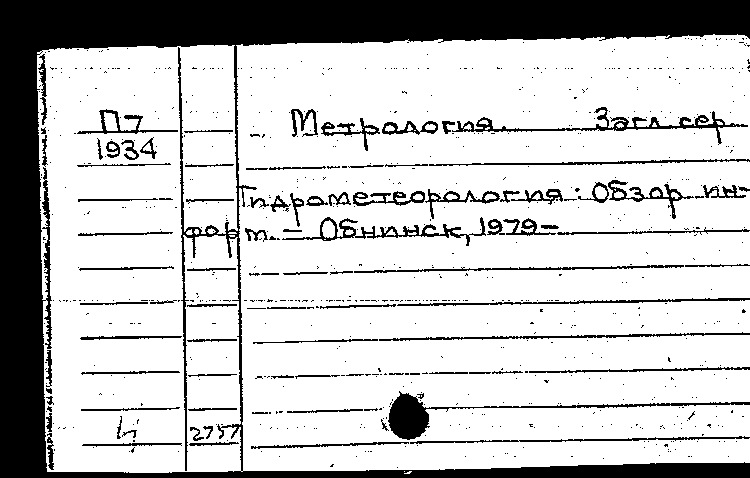 П7
1934
- Метрология. Загл. сер.
Гидрометеорология : Обзор ин-
форм. - Обнинск, 1979-
4 2757